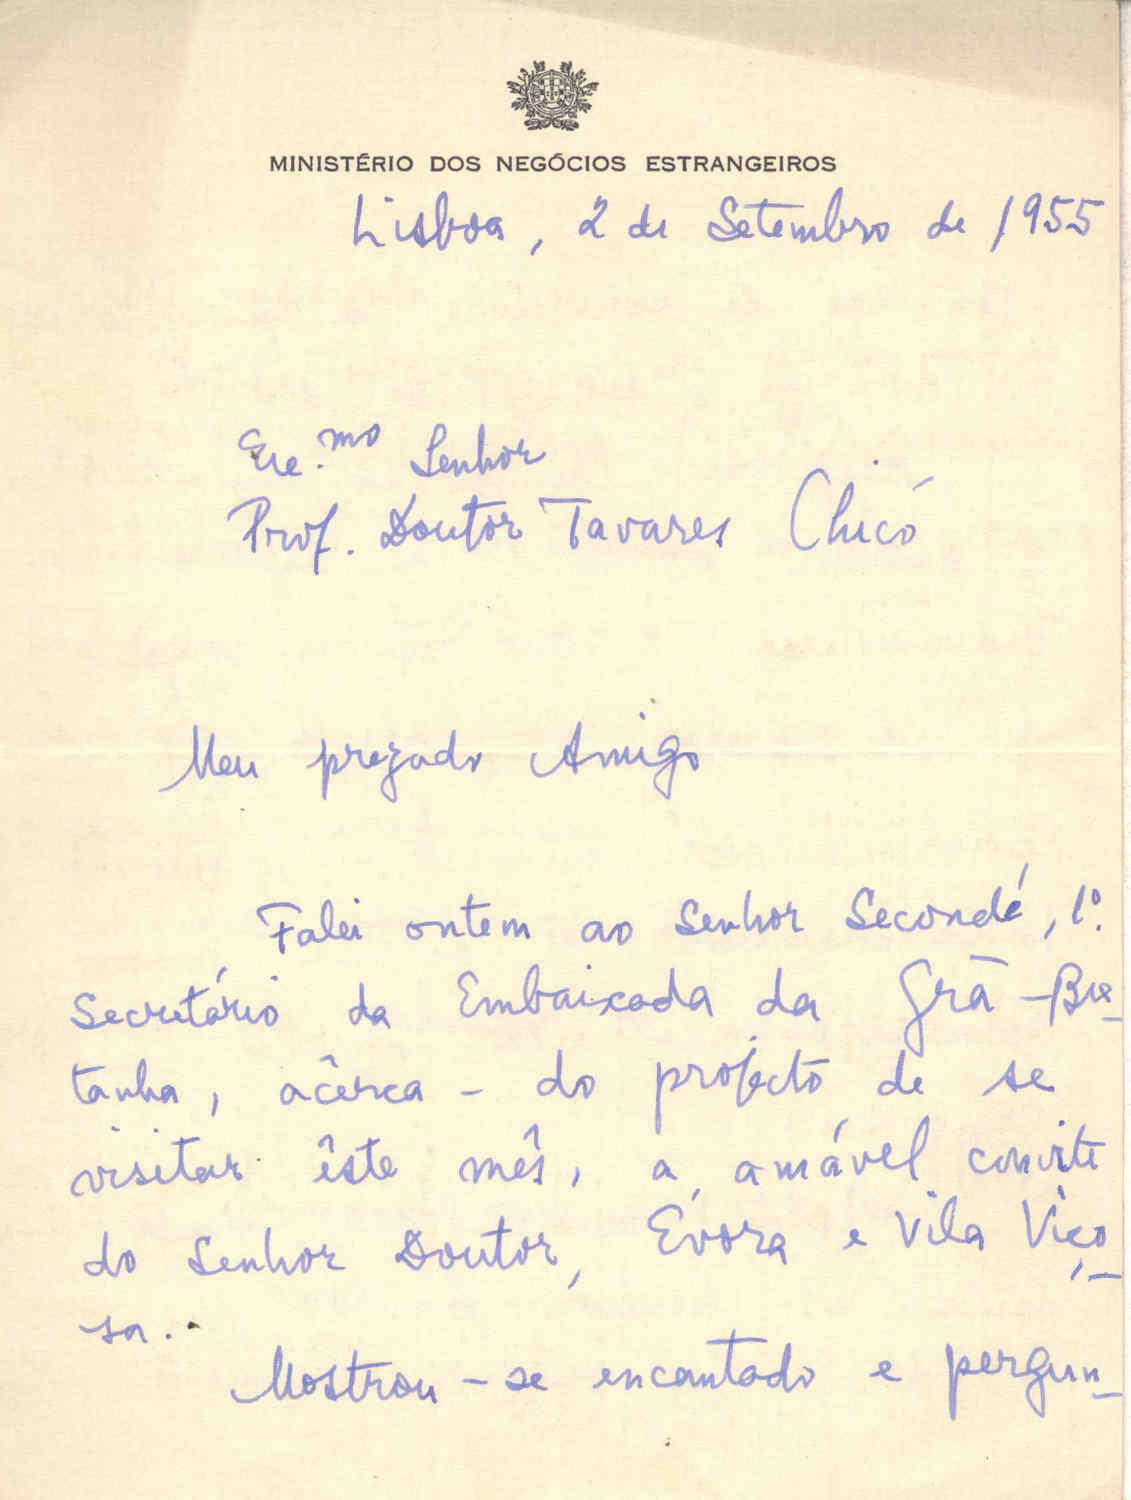 MINISTÉRIO DOS NEGÓCIOS ESTRANGEIROS
Lisboa, 2 de Setembro de 1955
Exc.mo Senhor
Prof. Doutor Tavares Chicó
Meu prezado Amigo
Falei ontem ao Senhor Secondé, 1º.
Secretário da Embaixada da Grã-Bre-
tanha, acêrca - do projecto de se
visitar êste mês, a amável convite
do Senhor Doutor, Évora e Vila Viço-
sa.
Mostrou-se encantado e pergun-